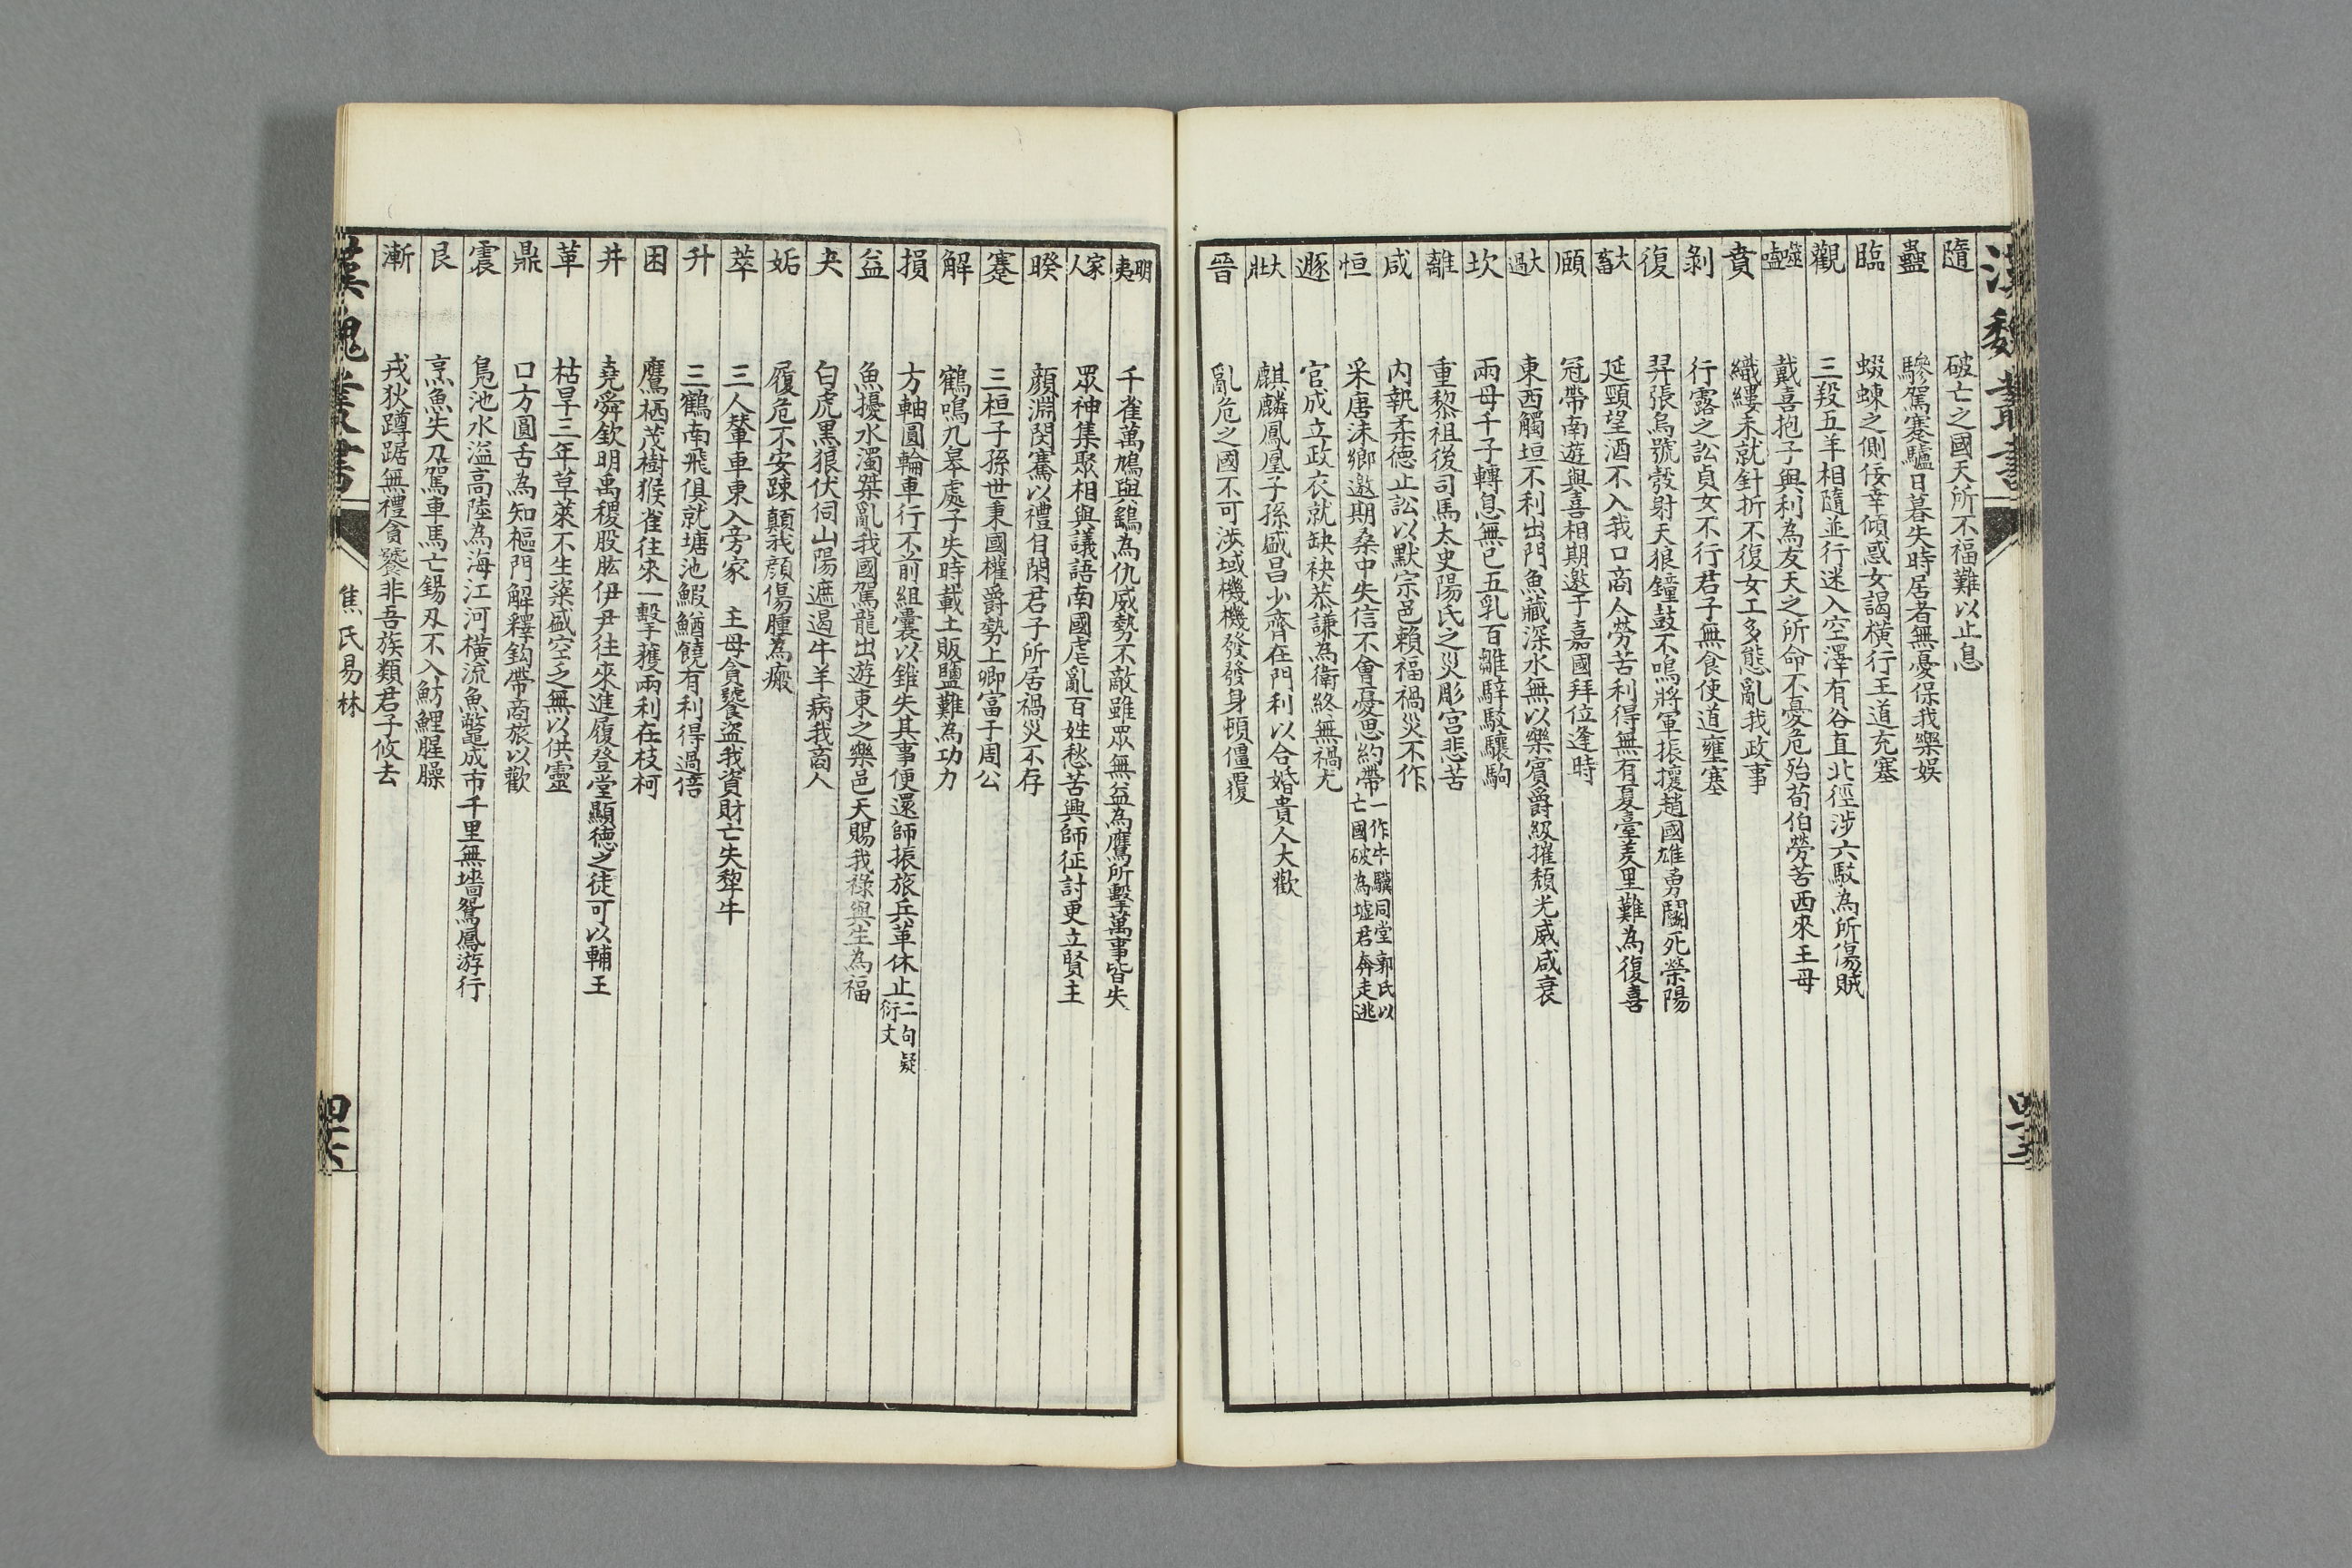 漢魏叢書
隨 破亡之國天所不福難以止息
蠱 驂駕蹇驢日暮失時居者無憂保我樂娛
臨 蝃蝀之側佞幸傾惑女謁橫行王道充塞
觀 三羖五羊相隨並行迷入空澤有谷直北徑涉六駮為所傷賊
噬嗑 戴喜抱子與利為友天之所命不憂危殆荀伯勞苦西來王母
賁 織縷未就針折不復女工多態亂我政事
剝 行露之訟貞女不行君子無食使道壅塞
復 羿張烏號彀射天狼鐘鼓不鳴將軍振擾趙國雄勇鬭死滎陽
大畜 延頸望酒不入我口商人勞苦利得無有夏臺羑里難為復喜
頤 冠帶南遊與喜相期邀于嘉國拜位逢時
大過 東西觸垣不利出門魚藏深水無以樂賓爵級摧頹光威咸衰
坎 兩母千子轉息無已五乳百雛騂駮驤駒
離 重黎祖後司馬太史陽氏之災彫宮悲苦
咸 內執柔德止訟以默宗邑賴福禍災不作
恒 采唐沬鄉邀期桑中失信不會憂思約帶一作牛驥同堂郭氏以亡國破為墟君奔走逃
遯 官成立政衣就缺袂恭謙為衛終無禍尤
大壯 麒麟鳳凰子孫盛昌少齊在門利以合婚貴人大歡
晉 亂危之國不可涉域機機發發身頓僵覆
明夷 千雀萬鳩與鷂為仇威勢不敵雖眾無益為鷹所擊萬事皆失
家人 眾神集聚相與議語南國虐亂百姓愁苦興師征討更立賢主
睽 顏淵閔騫以禮自閑君子所居禍災不存
蹇 三桓子孫世秉國權爵勢上卿富于周公
解 鶴鳴九皋處子失時載土販鹽難為功力
損 方軸圓輪車行不前組囊以錐失其事便還師振旅兵革休止二句疑衍文
益 魚擾水濁桀亂我國駕龍出遊東之樂邑天賜我祿與生為福
夬 白虎黑狼伏伺山陽遮遏牛羊病我商人
姤 履危不安踈顛我顏傷腫為瘢
萃 三人輦車東入旁家 主母貪饕盜我資財亡失犂牛
升 三鶴南飛俱就塘池鰕鰌饒有利得過倍
困 鷹栖茂樹猴雀往來一擊獲兩利在枝柯
井 堯舜欽明禹稷股肱伊尹往來進履登堂顯德之徒可以輔王
革 枯旱三年草萊不生粢盛空乏無以供靈
鼎 口方圓舌為知樞門解釋鉤帶商旅以歡
震 鳧池水溢高陸為海江河橫流魚鼈成市千里無墻鴛鳳游行
艮 烹魚失刀駕車馬亡鍚刃不入魴鯉腥臊
漸 戎狄蹲踞無禮貪饕非吾族類君子攸去
漢魏叢書 焦氏易林